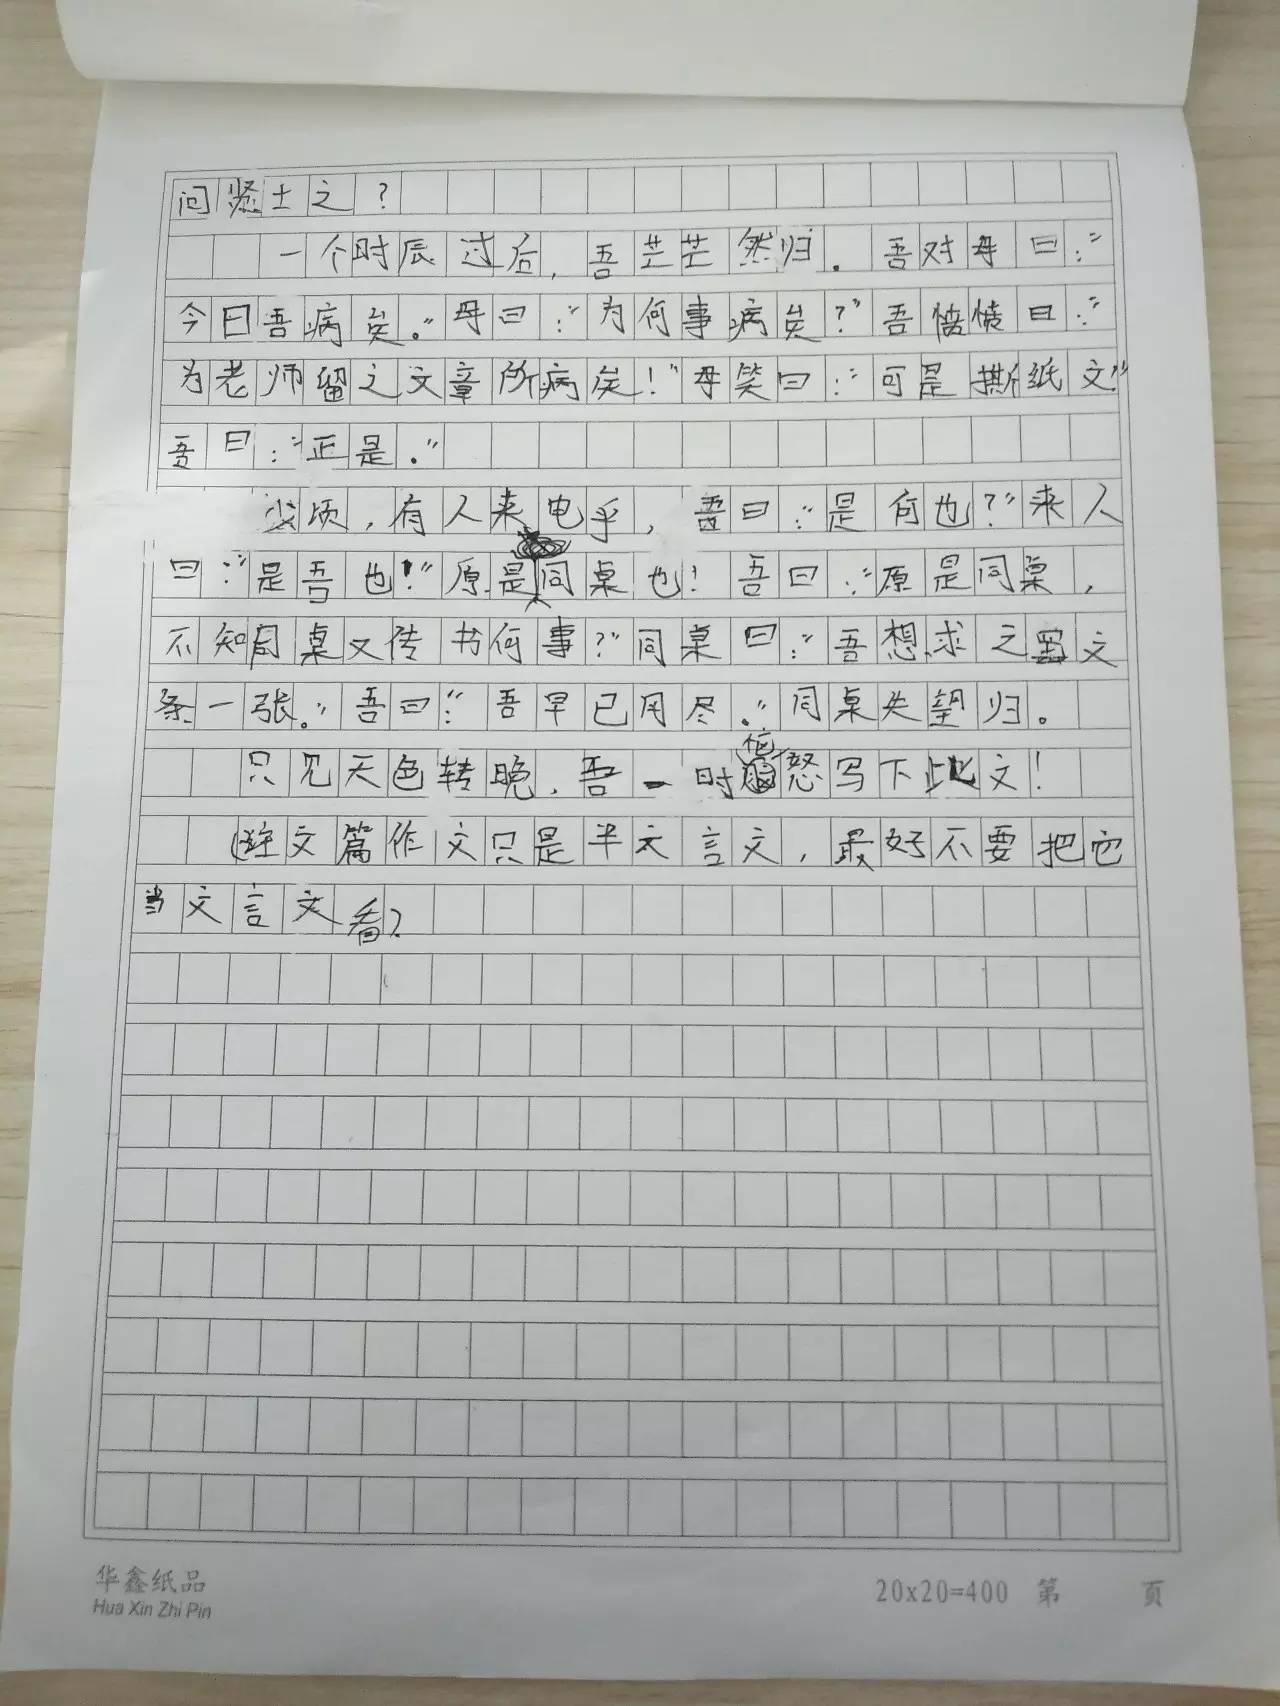 问贤士之?
一个时辰过后,吾芒芒然归。吾对母曰:“
今日吾病矣。”母曰:“为何事病矣?”吾愤愤曰:“
为老师留之文章所病矣!”母笑曰:“可是撕纸文?”
吾曰:“正是。”
少顷,有人来电乎,吾曰:“是何也?”来人
曰:“是吾也!”原是同桌也!吾曰:“原是同桌,
不知同桌又传书何事?”同桌曰:“吾想求之 文
条一张。”吾曰:“吾早已用尽。”同桌失望归。
只见天色转晚,吾一时恼怒写下此文!
(注文篇作文只是半文言文,最好不要把它
当文言文看)
华鑫纸品
Hua Xin Zhi Pin
20x20=400 第 页